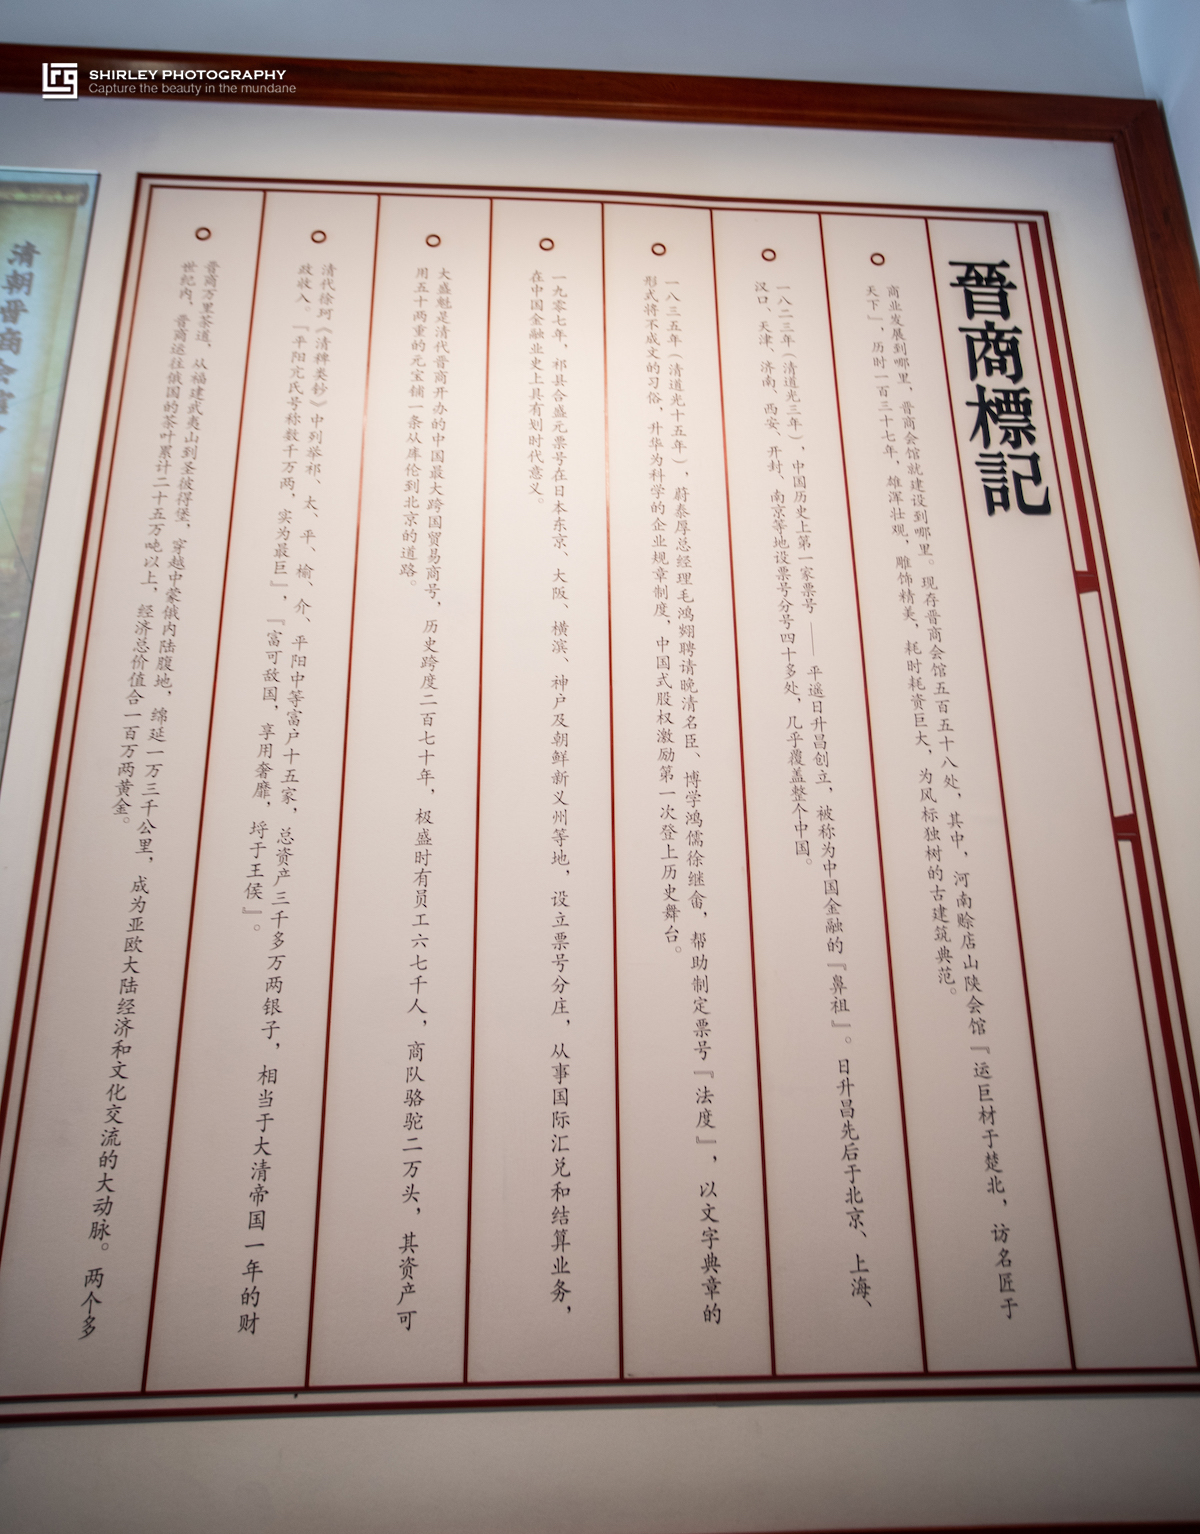 SHIRLEY PHOTOGRAPHY
Capture the beauty in the mundane
晋商標記
商业发展到哪里，晋商会馆就建设到哪里。现存晋商会馆五百五十八处，其中，河南赊店山陕会馆『运巨材于楚北，访名匠于
天下』，历时一百三十七年，雄浑壮观，雕饰精美，耗时耗资巨大，为风标独树的古建筑典范。
一八二三年（清道光三年），中国历史上第一家票号——平遥日升昌创立，被称为中国金融的『鼻祖』。日升昌先后于北京、上海、
汉口、天津、济南、西安、开封、南京等地设票号分号四十多处，几乎覆盖整个中国。
一八三五年（清道光十五年），蔚泰厚总经理毛鸿翙聘请晚清名臣、博学鸿儒徐继畬，帮助制定票号『法度』，以文字典章的
形式将不成文的习俗，升华为科学的企业规章制度，中国式股权激励第一次登上历史舞台。
一九零七年，祁县合盛元票号在日本东京、大阪、横滨、神户及朝鲜新义州等地，设立票号分庄，从事国际汇兑和结算业务，
在中国金融业史上具有划时代意义。
大盛魁是清代晋商开办的中国最大跨国贸易商号，历史跨度二百七十年，极盛时有员工六七千人，商队骆驼二万头，其资产可
用五十两重的元宝铺一条从库伦到北京的道路。
清代徐珂《清稗类钞》中列举祁、太、平、榆、介、平阳中等富户十五家，总资产三千多万两银子，相当于大清帝国一年的财
政收入。『平阳亢氏号称数千万两，实为最巨』，『富可敌国，享用奢靡，埒于王侯』。
晋商万里茶道，从福建武夷山到圣彼得堡，穿越中蒙俄内陆腹地，绵延一万三千公里，成为亚欧大陆经济和文化交流的大动脉。两个多
世纪内，晋商运往俄国的茶叶累计二十五万吨以上，经济总价值合一百万两黄金。
清朝晋商会馆